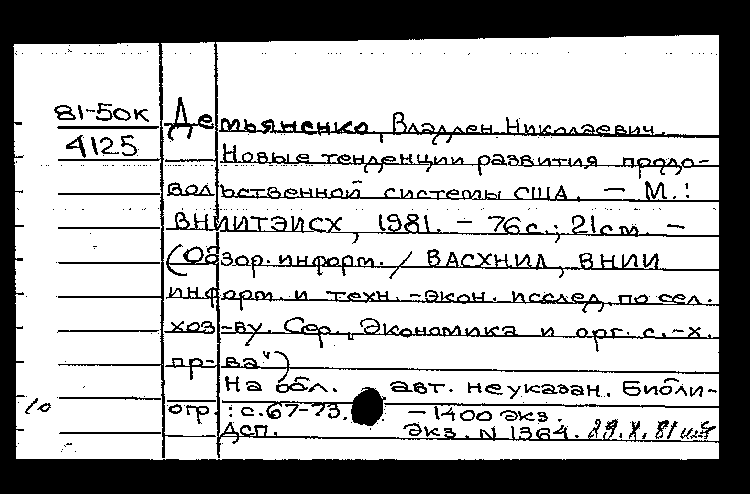 81-50К
4125
Демьяненко, Владлен Николаевич.
Новые тенденции развития продо-
вольственной системы США. — М.:
ВНИИТЭИСХ, 1981. — 76 с.; 21 см. —
(Обзор. информ. / ВАСХНИЛ, ВНИИ
информ. и техн.-экон. исслед. по сел.
хоз-ву. Сер. „Экономика и орг. с.-х.
пр-ва")
На обл. авт. не указан. Библи-
огр.: с. 67-73. — 1400 экз.
ДСП. Экз. N 1364. 29.X.81
10